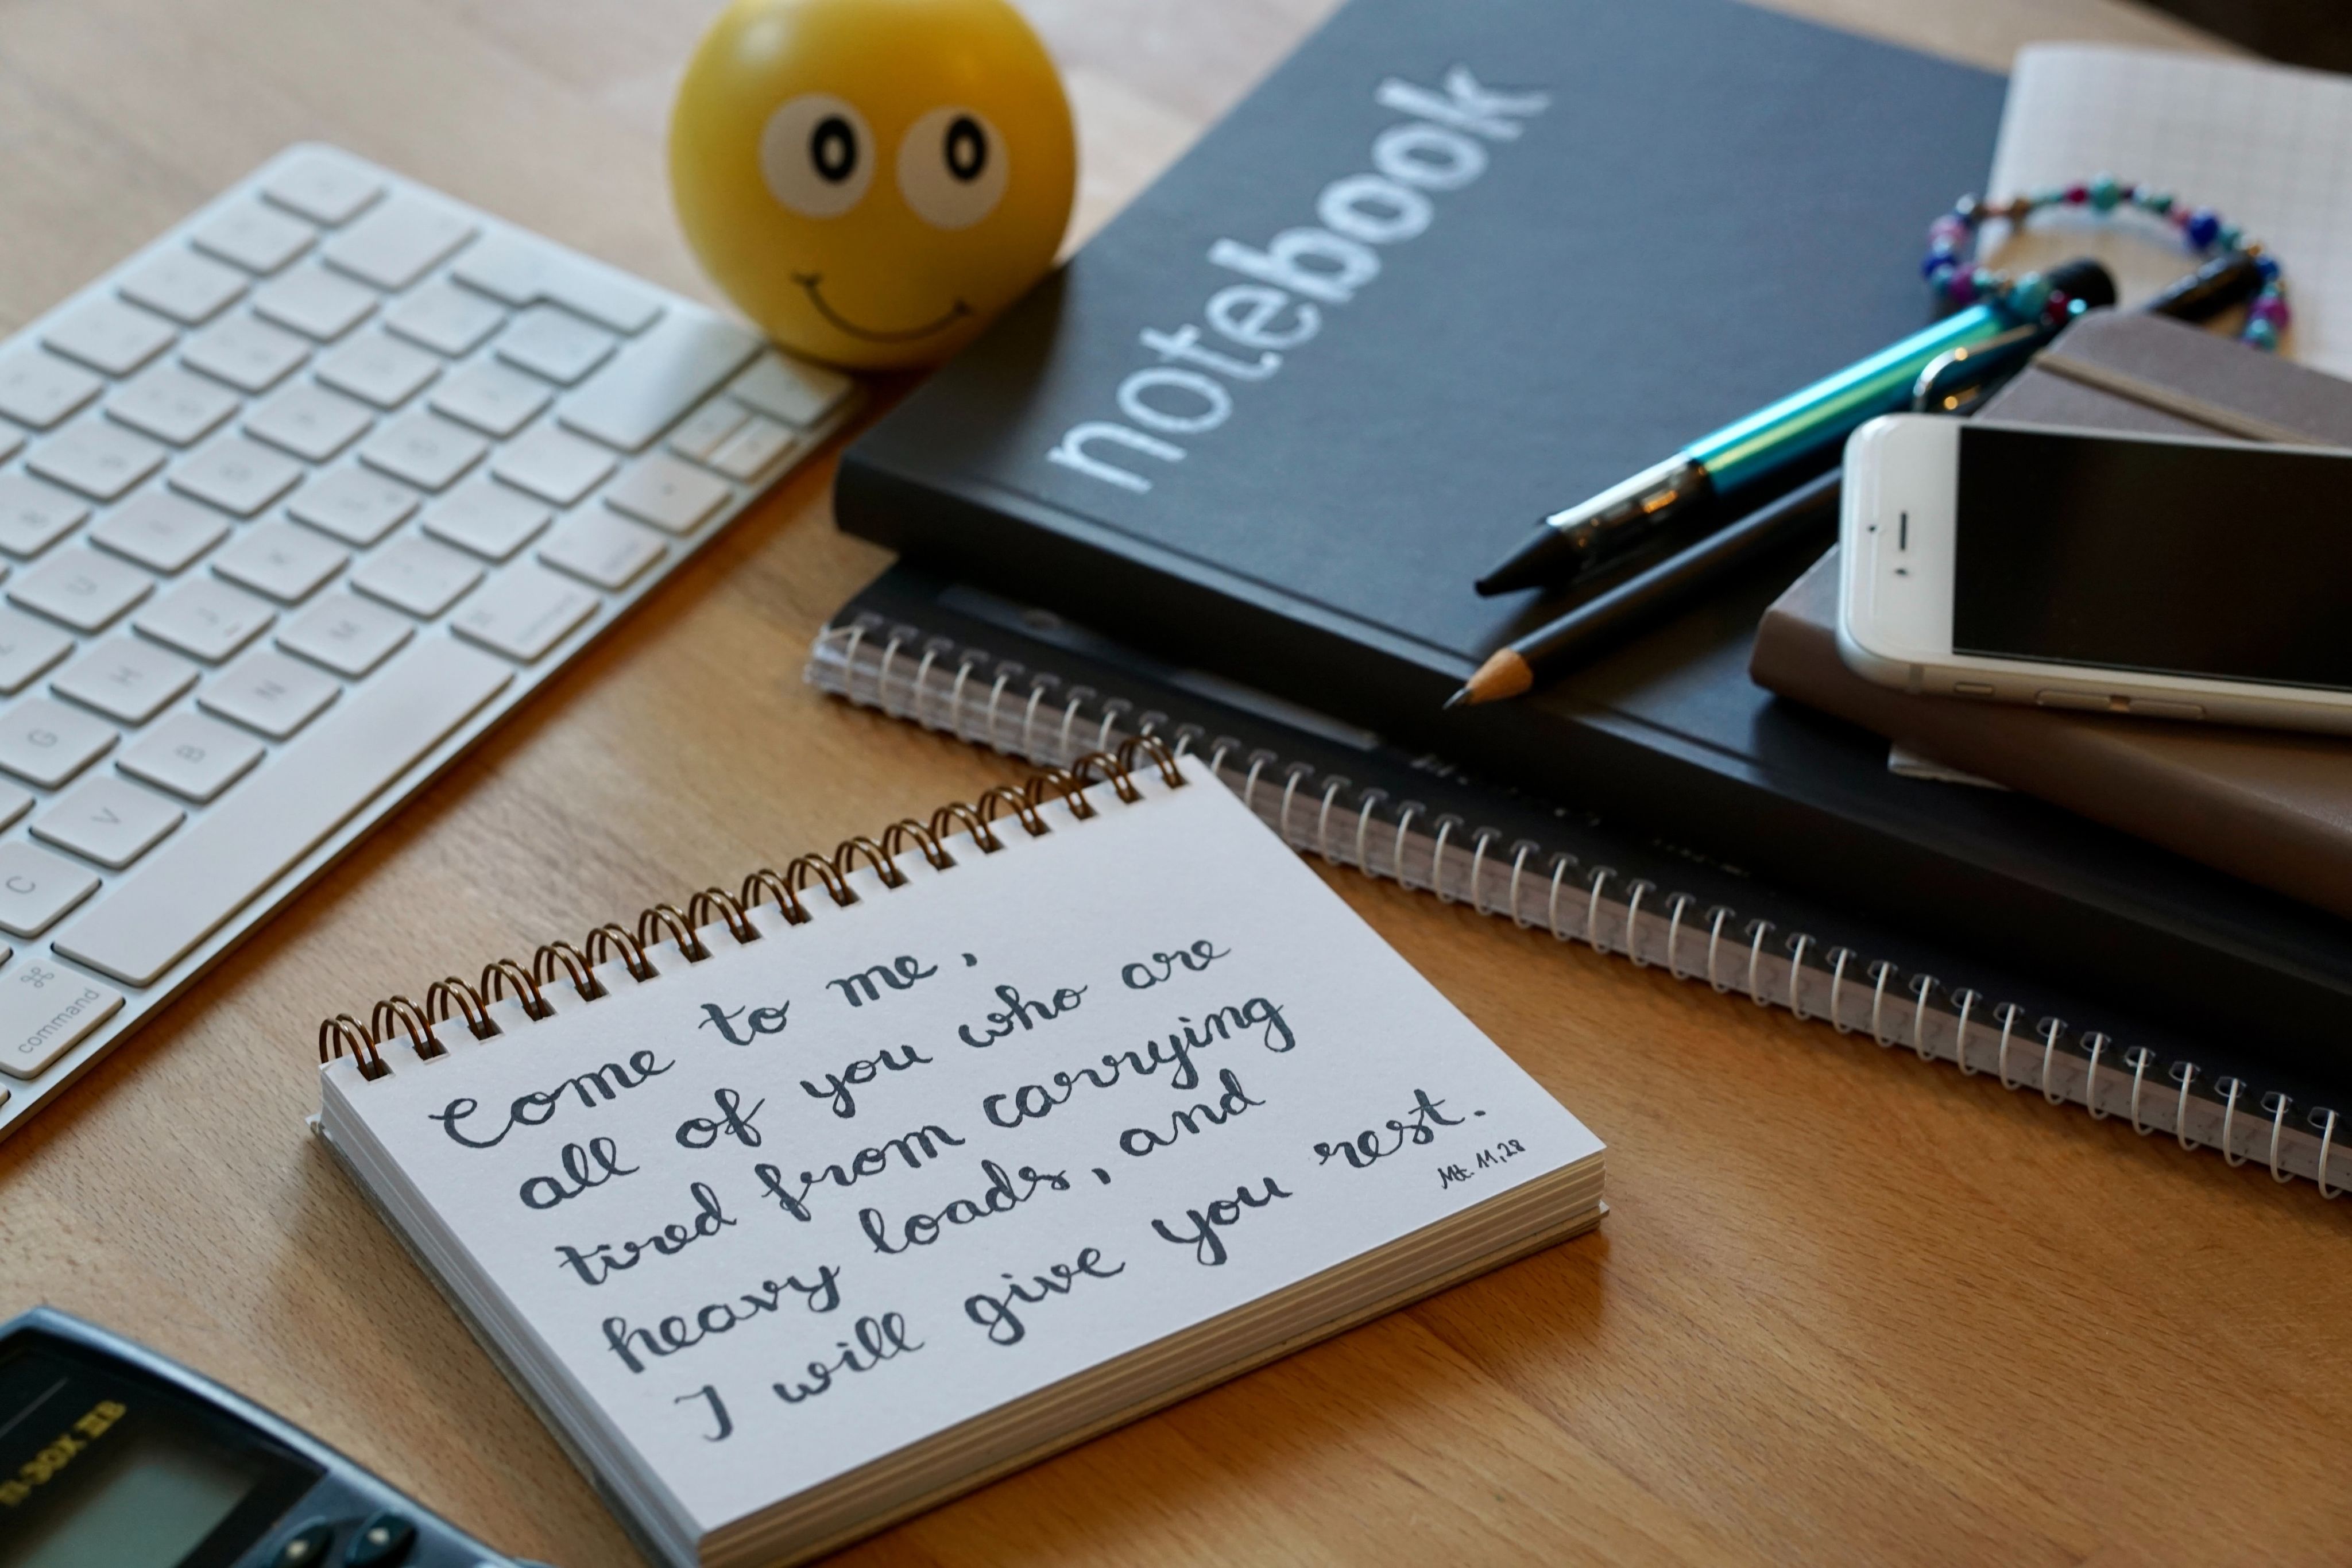 notebook
Come to me,
all of you who are
tired from carrying
heavy loads, and
I will give you rest.
Mt. 11,28
G
H
J
U
V
B
N
M
C
⌘
command
TI-30X IIB